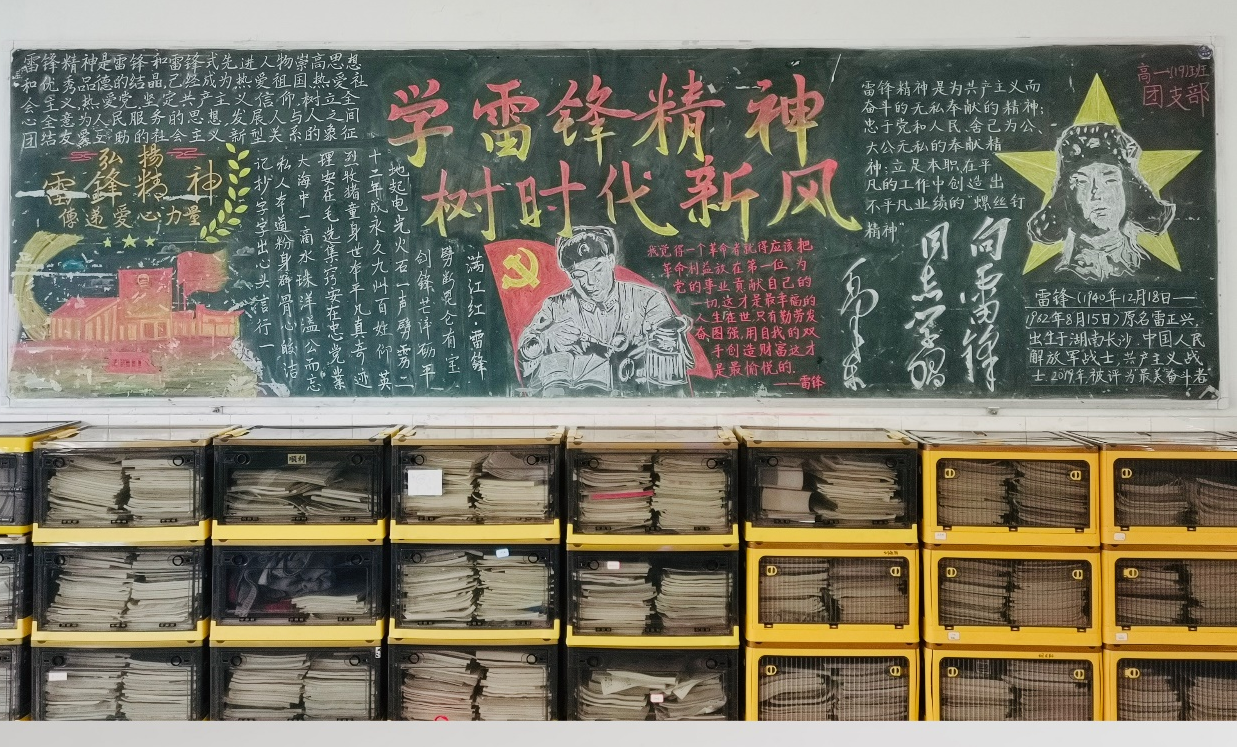 雷锋精神是雷锋和雷锋式先进人物崇高思想
和优秀品德的结晶,已经成为热爱祖国,热爱社
会主义,热爱党,坚定共产主义信仰,树立全
心全意为人民服务的思想,发展人与人之间
团结友爱互助的社会主义新型关系的象征
弘揚
雷鋒精神
傳遞愛心力量
学雷锋精神
树时代新风
满江红·雷锋
劈断昆仑有宝
剑锋芒淬砺平
地起电光火石一声劈雳二
十二年成永久九州百姓仰英
到牧猪童身世本平凡真奇迹
理安在毛选集窍安在忠党业
大海中一滴水珠洋溢公而忘
私人本道粉身群骨心皎洁
记抄字字出心头言行一
我觉得一个革命者就得应该把
革命利益放在第一位,为
党的事业贡献自己的
一切,这才是最幸福的
人生在世,只有勤劳发
奋图强,用自我的双
手创造财富,这才
是最愉悦的.
——雷锋
雷锋精神是为共产主义而
奋斗的无私奉献的精神;
忠于党和人民、舍己为公、
大公无私的奉献精
神;立足本职,在平
凡的工作中创造出
不平凡业绩的“螺丝钉
精神”
向雷锋
同志学习
毛泽东
高一(419)班
团支部
雷锋(1940年12月18日—
1962年8月15日)原名雷正兴,
出生于湖南长沙,中国人民
解放军战士,共产主义战
士.2019年被评为“最美奋斗者
顺利